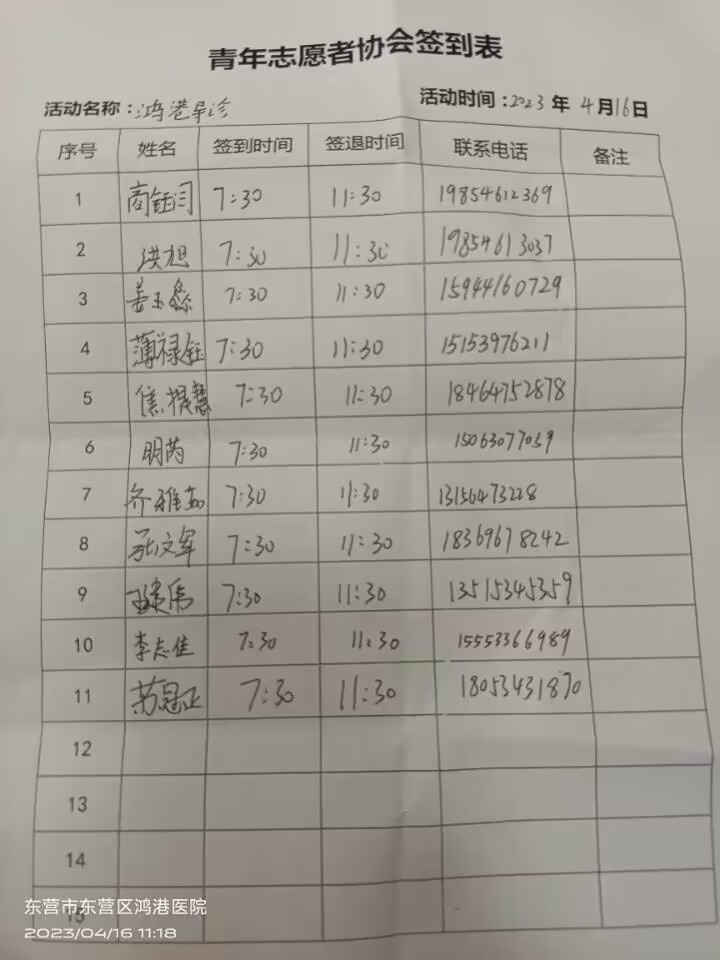 青年志愿者协会签到表
活动名称：鸿港导诊 活动时间：2023年 4月16日
序号 姓名 签到时间 签退时间 联系电话 备注
1 商钰闫 7:30 11:30 19854612369
2 洪旭 7:30 11:30 19854613037
3 姜玉淼 7:30 11:30 15944160729
4 薄禄钰 7:30 11:30 15153976211
5 焦提慧 7:30 11:30 18464752878
6 明芮 7:30 11:30 15063077059
7 齐雅茹 7:30 11:30 13156473228
8 张文军 7:30 11:30 18369678242
9 7:30 11:30 13515345359
10 李志佳 7:30 11:30 15553366989
11 苏冠正 7:30 11:30 18053431870
12
13
14
15
东营市东营区鸿港医院
2023/04/16 11:18